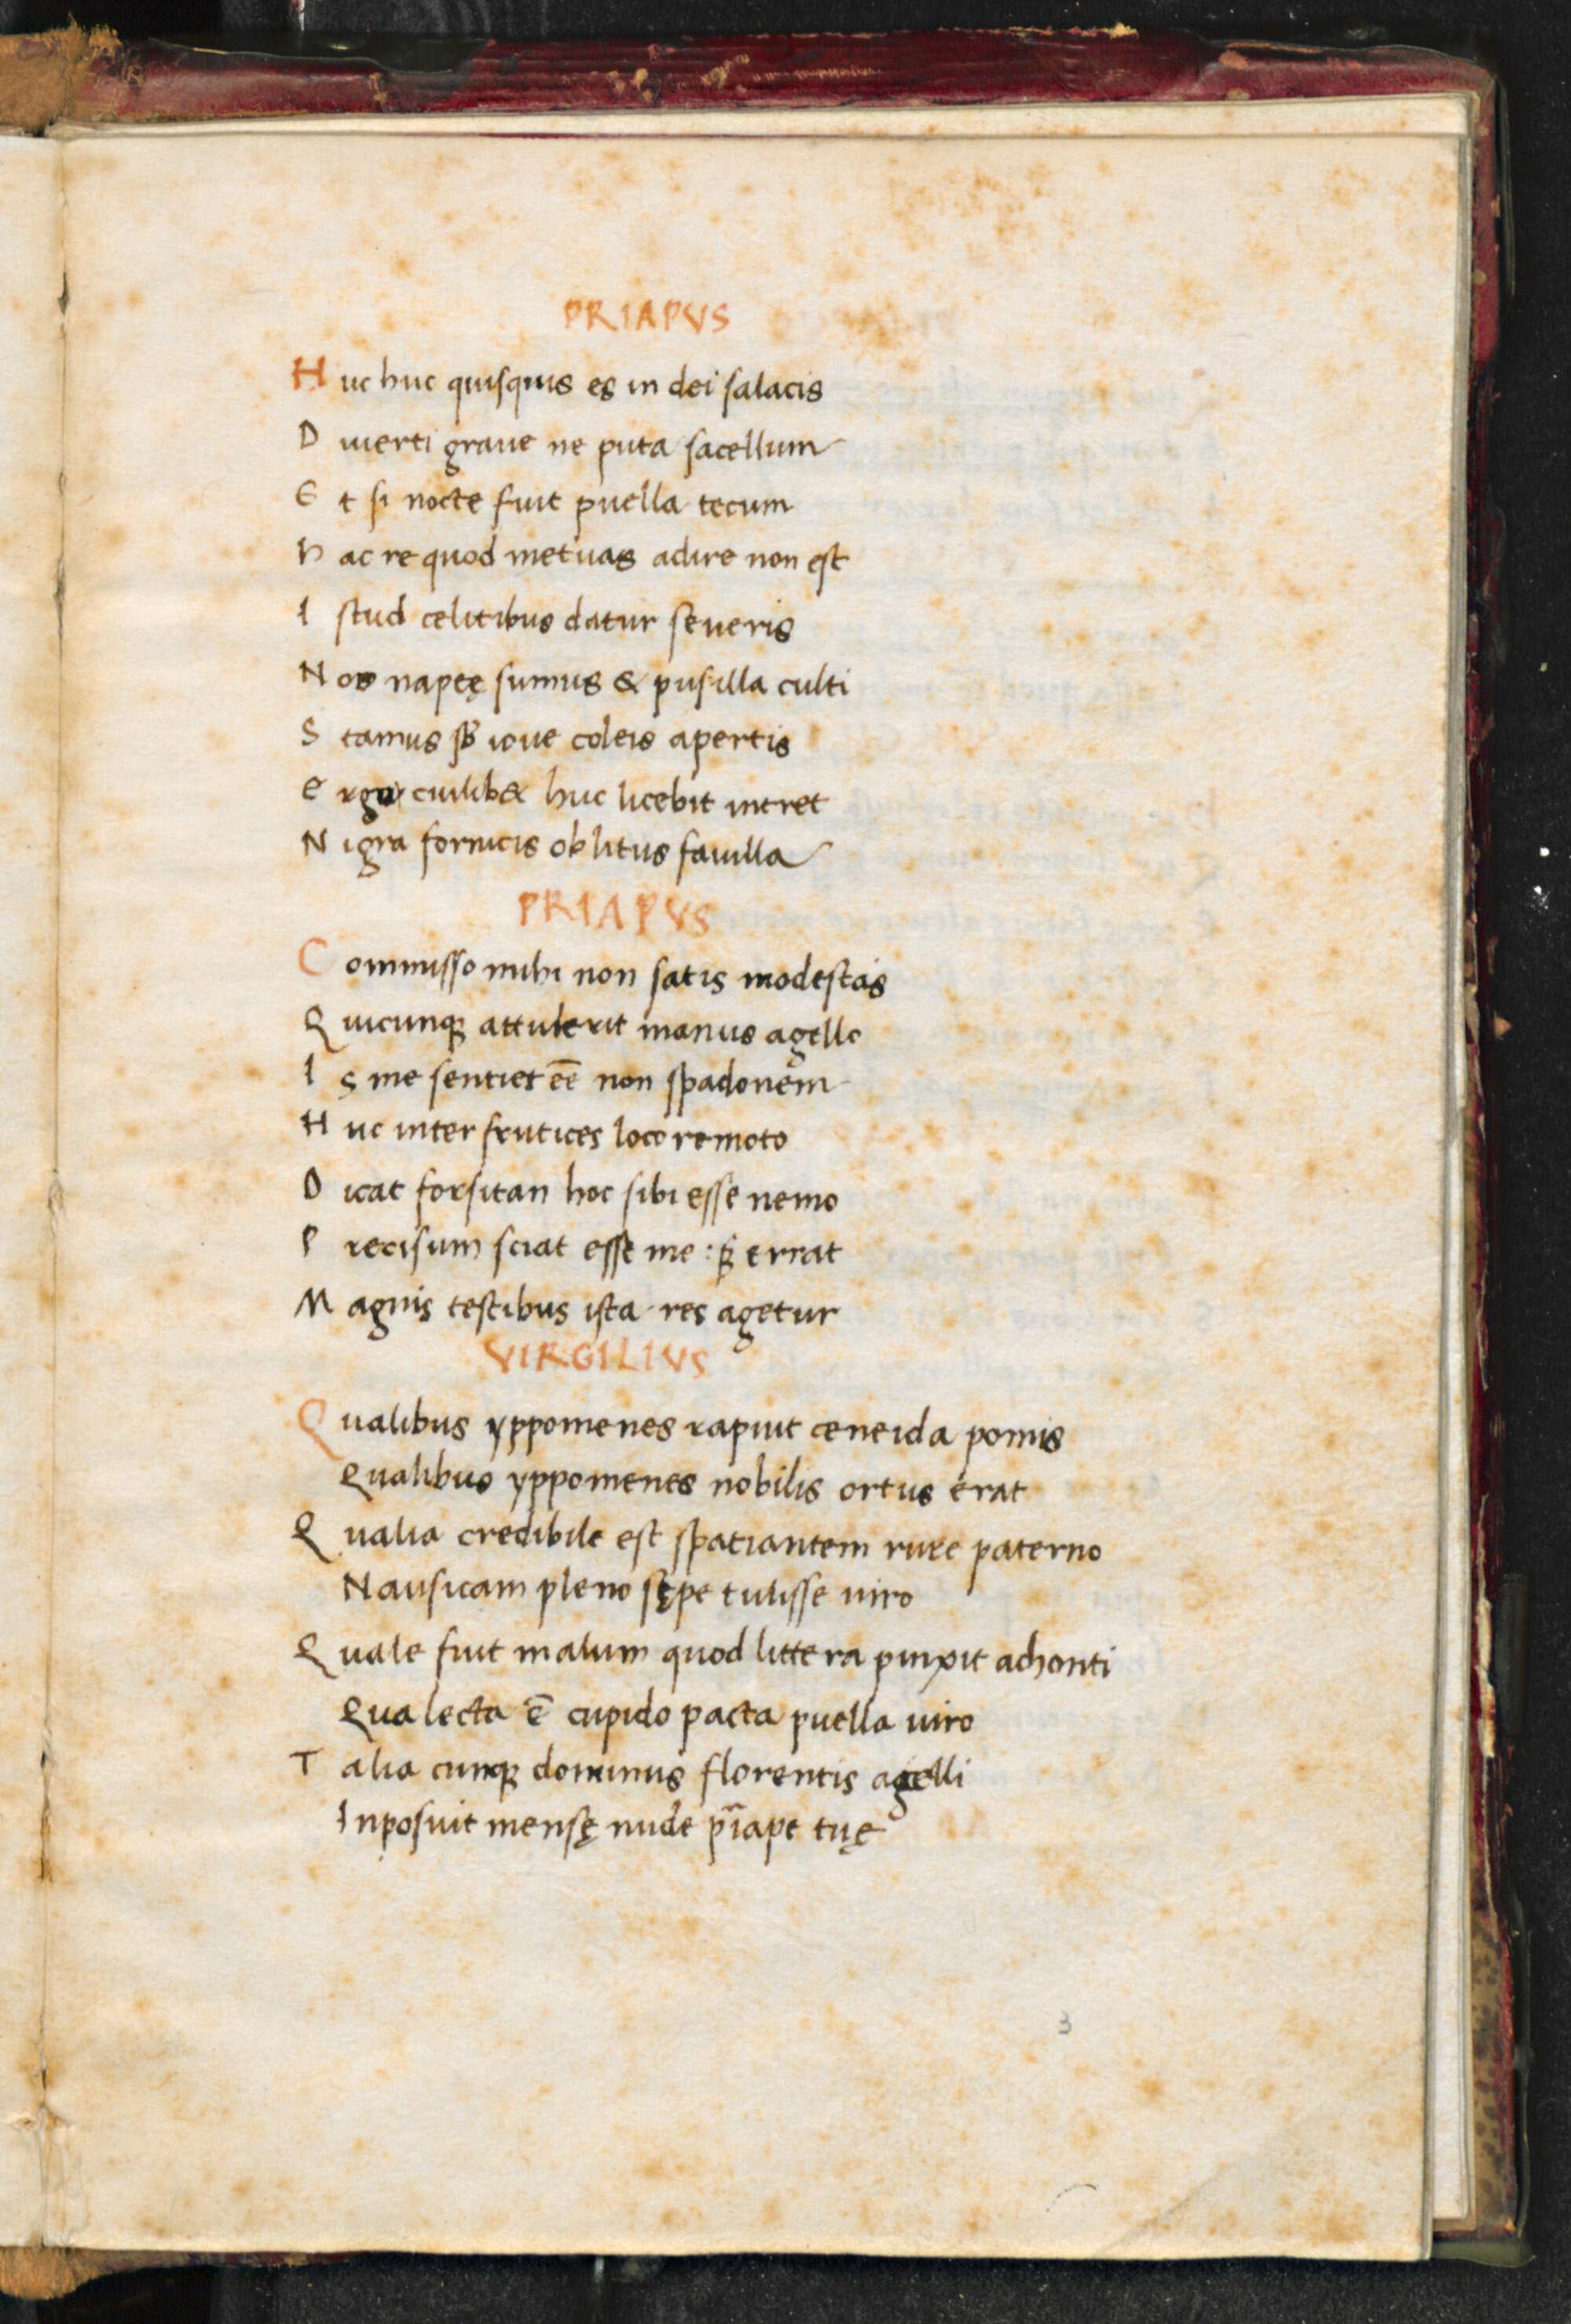 PRIAPVS
Huc huc quisquis es in dei salacis
Diuerti graue ne puta sacellum
Et si nocte fuit puella tecum
hac re quod metuas adire non est
Istud celitibus datur seueris
Nos napeę sumus & pusilla culti
Stamus sb̄ ioue coleis apertis
Ergo cuilib& huc licebit intret
Nigra fornicis oblitus fauilla
PRIAPVS
Commisso mihi non satis modestas
Quicunqꝫ attulerit manus agello
Is me sentiet eē non spadonem
Huc inter frutices loco remoto
Dicat forsitan hoc sibi esse nemo
Precisum sciat esse me: sꝫ errat
Magnis testibus ista res agetur
VIRGILIVS
Qualibus yppomenes rapuit ceneida pomis
Qualibus yppomenes nobilis ortus erat
Qualia credibile est spatiantem rure paterno
Nausicam pleno sępe tulisse uiro
Quale fuit malum quod littera pinxit achonti
Qua lecta ē cupido pacta puella uiro
Talia cunqꝫ dominus florentis agelli
Inposuit mensę nude p̄iape tuę
3